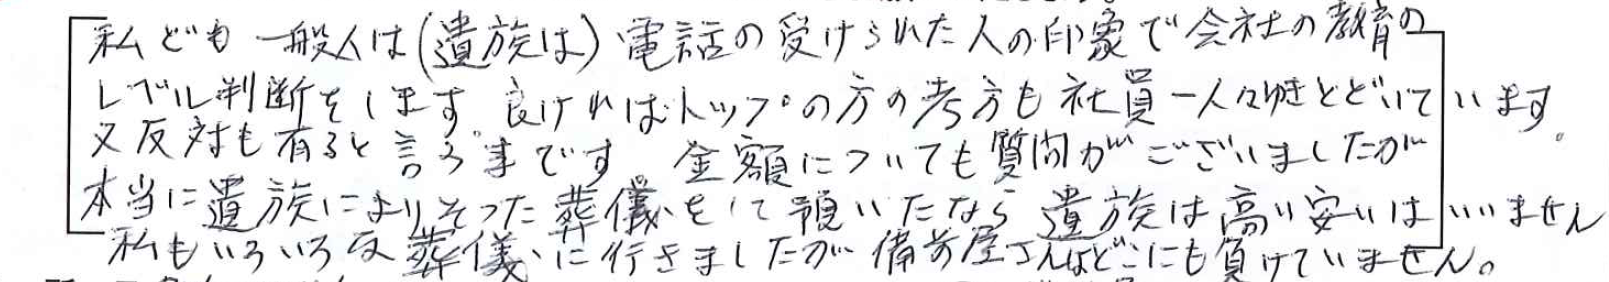 私ども一般人は(遺族は)電話の受けられた人の印象で会社の教育の
レベル判断をします 良ければトップの方の考方も社員一人々ゆきとどいています。
又反対も有ると言う事です 金額についても質問がございましたが
本当に遺族によりそった葬儀をして頂いたなら遺族は高い安いはいいません
私もいろいろな葬儀に行きましたが備前屋さんはどこにも負けていません。